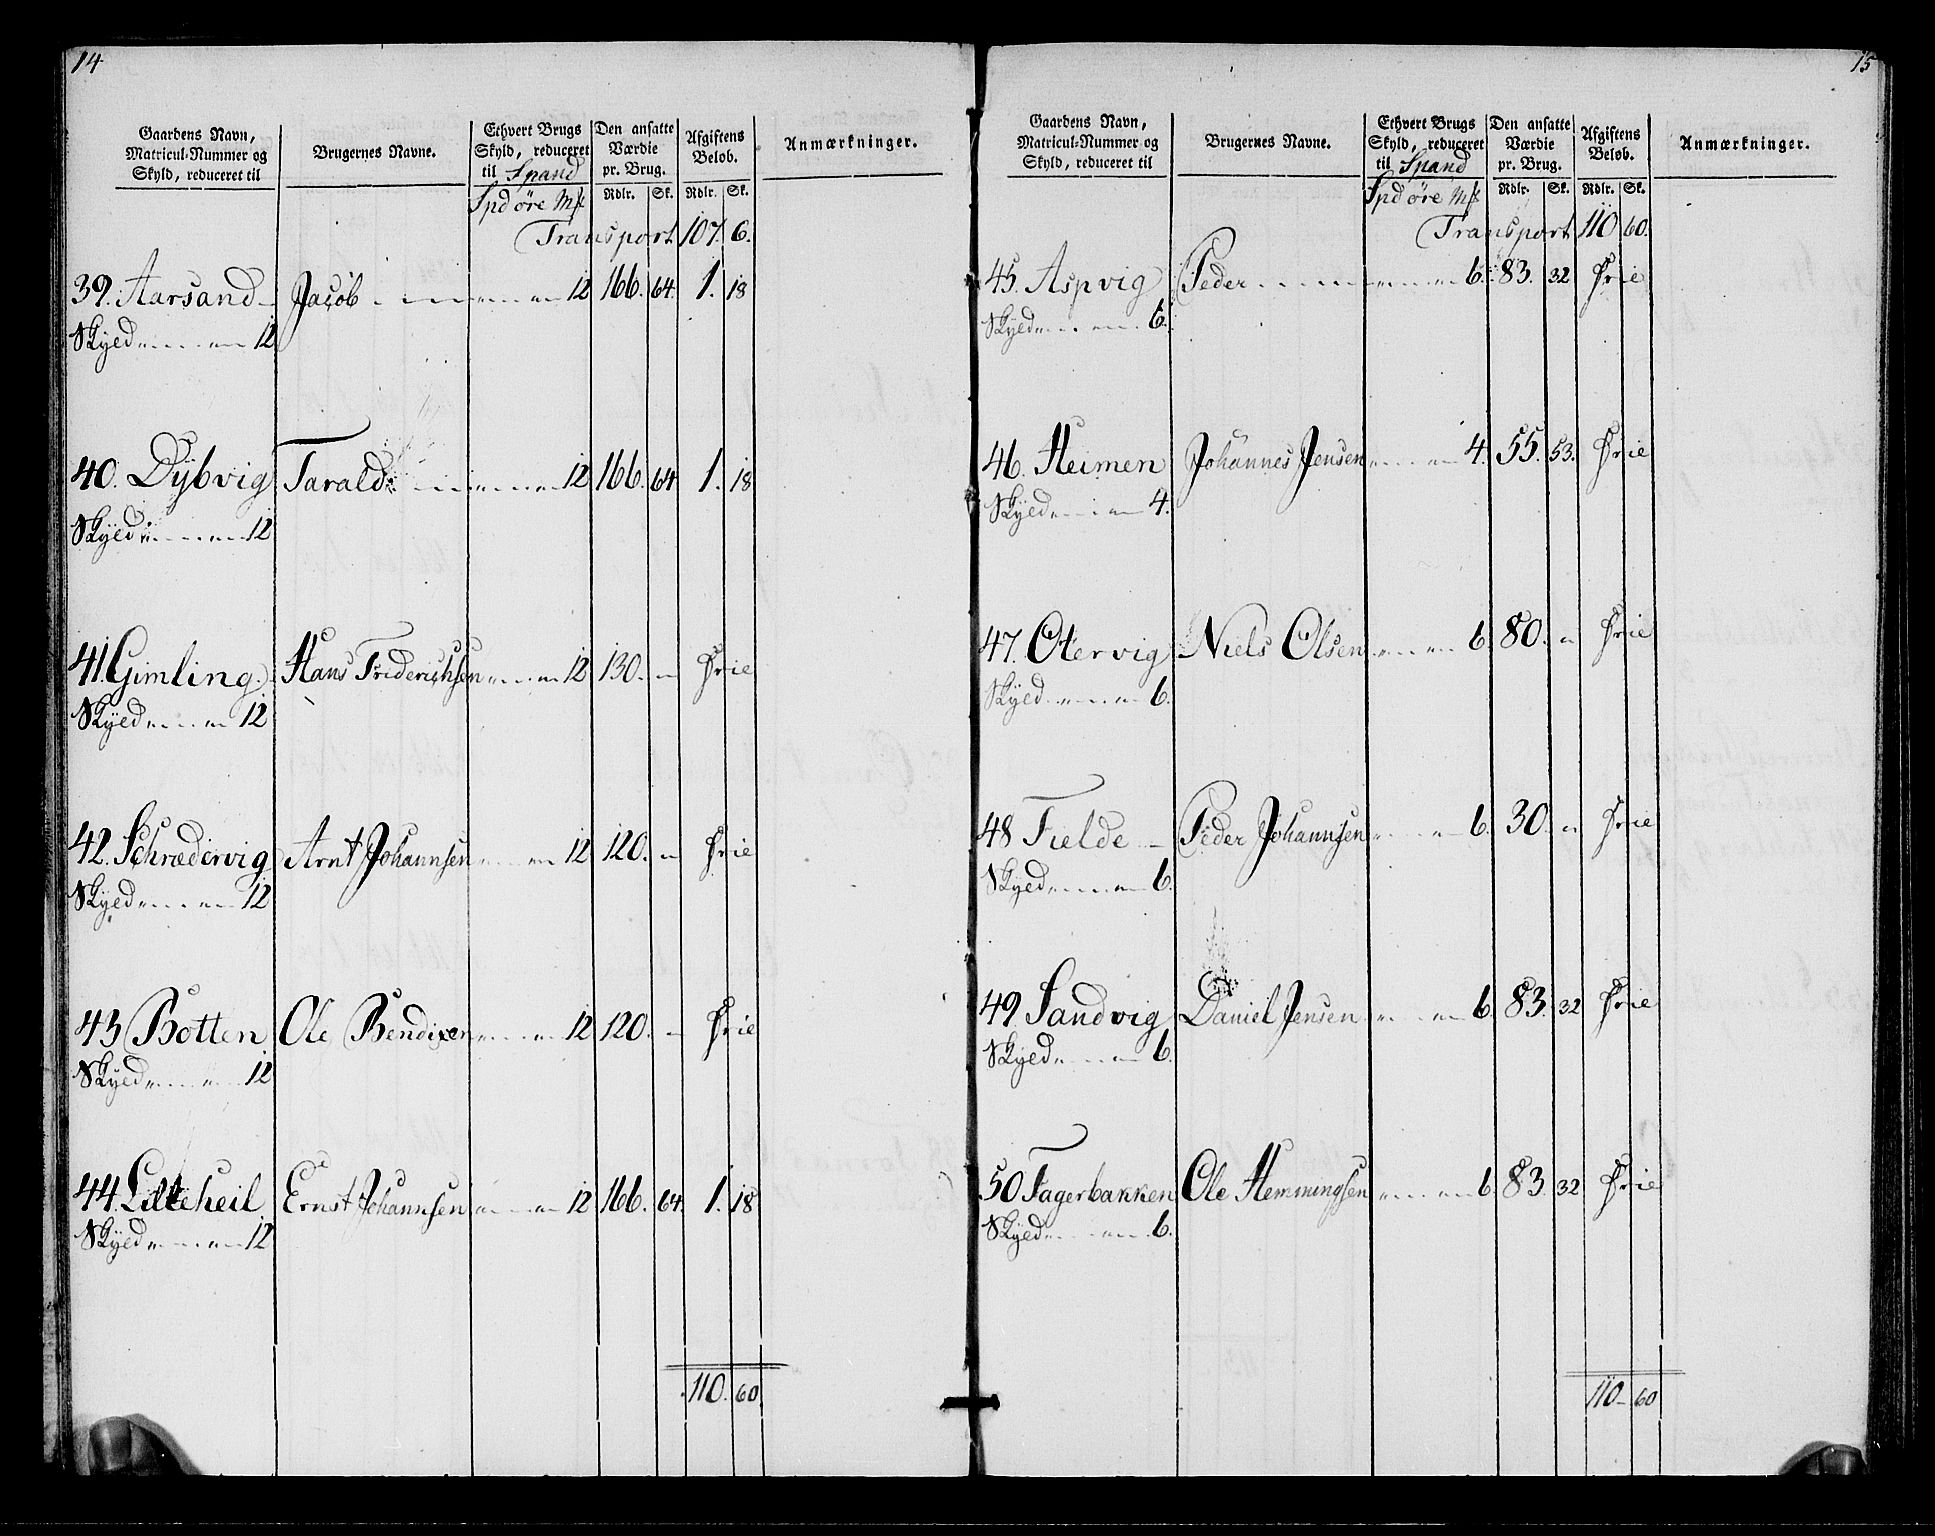 14
Gaardens Navn,
Matricul-Nummer og
Skyld, reduceret til
Brugernes Navne.
Ethvert Brugs
Skyld, reduceret
til Spand
Spd øre Mk
Den ansatte
Værdie
pr. Brug.
Rdlr. Sk.
Afgiftens
Beløb.
Rdlr. Sk.
Anmærkninger.
Transport 107. 6.
39. Aarsand Jacob 12 166. 64. 1. 18
Skyld 12
40. Dybvig Tarald 12 166. 64 1. 18
Skyld 12
41. Gimling Hans Friderichsen 12 130. " Frie
Skyld 12
42. Schrædervig Arnt Johannsen 12 120. " Frie
Skyld 12
43 Botten Ole Bendixen 12 120. " Frie
Skyld 12
44. Lilleheil Ernst Johannsen 12 166. 64. 1. 18
Skyld 12
110. 60.
15
Gaardens Navn,
Matricul-Nummer og
Skyld, reduceret til
Brugernes Navne.
Ethvert Brugs
Skyld, reduceret
til Spand
Spd øre Mk
Den ansatte
Værdie
pr. Brug.
Rdlr. Sk.
Afgiftens
Beløb.
Rdlr. Sk.
Anmærkninger.
Transport 110 60.
45. Aspvig Peder 6. 83. 32 Frie
Skyld 6.
46. Heimen Johannes Jensen 4. 55. 53. Frie
Skyld 4.
47. Otervig Niels Olsen 6. 80. " Frie
Skyld 6.
48 Fielde Peder Johannsen 6. 30. " Frie
Skyld 6.
49 Sandvig Daniel Jensen 6. 83. 32 Frie
Skyld 6.
50 Fagerbakken Ole Hemmingsen 6. 83. 32 Frie
Skyld 6.
110 60